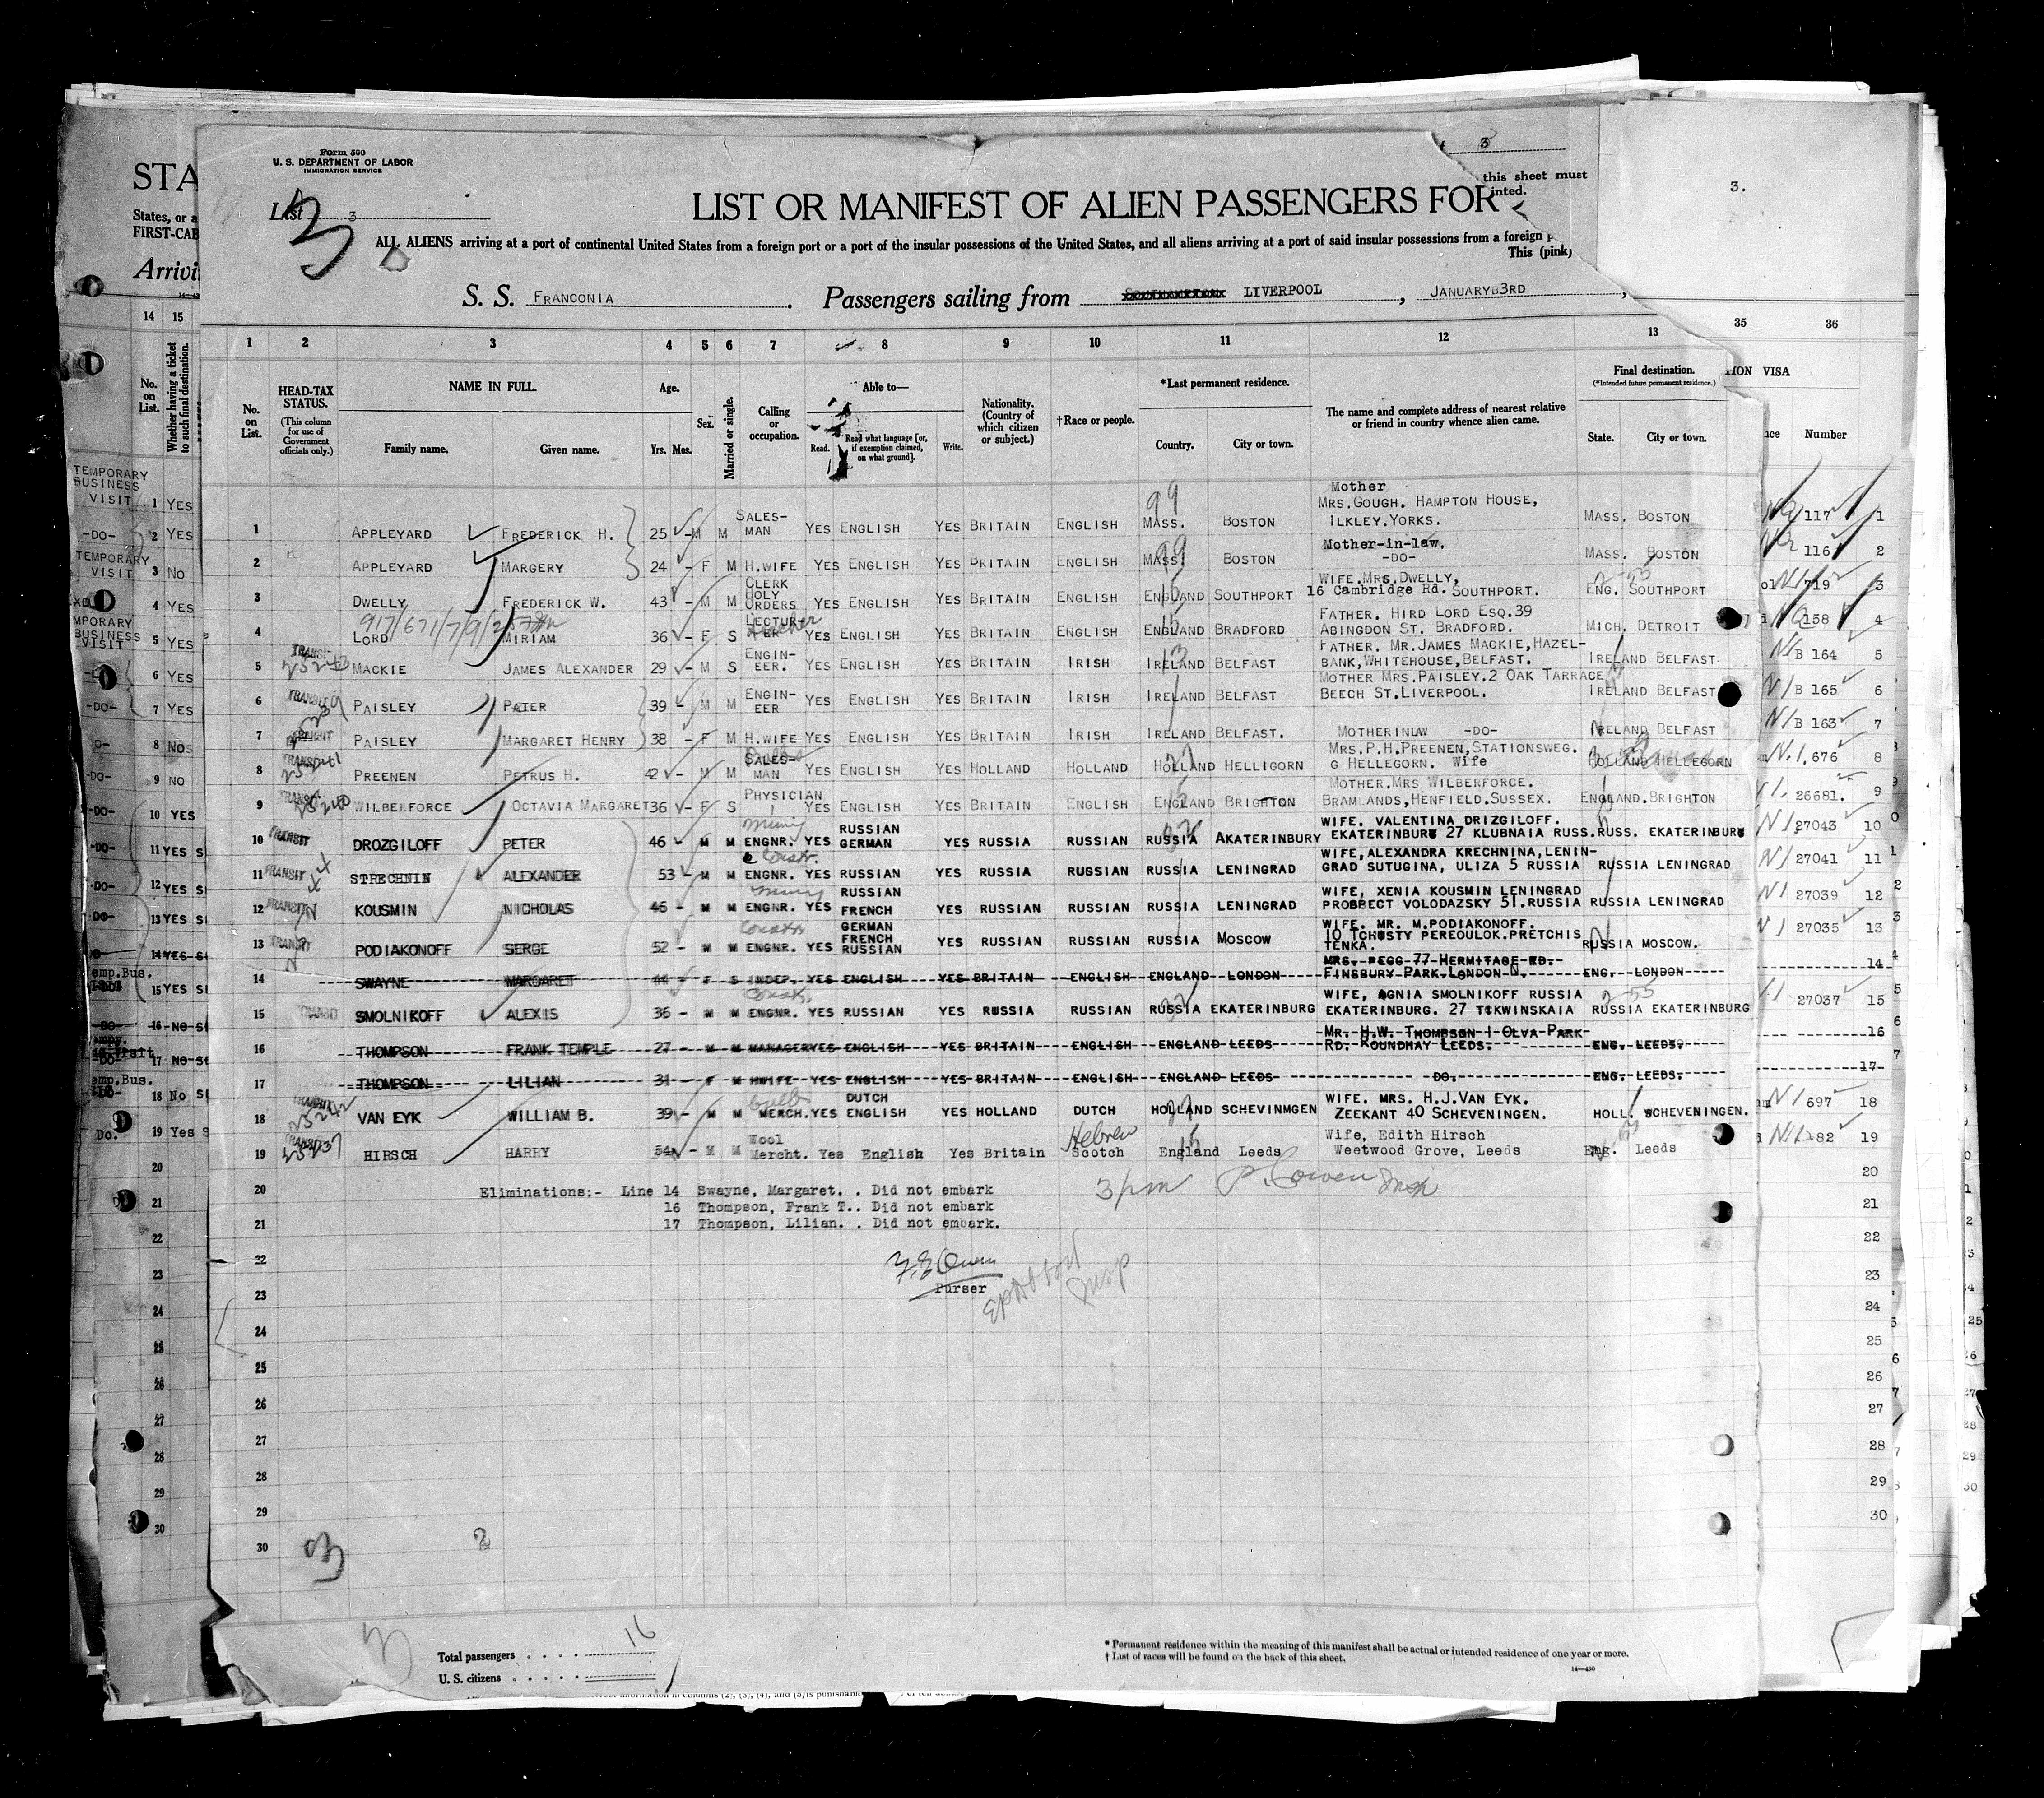 Form 500
U. S. DEPARTMENT OF LABOR
IMMIGRATION SERVICE
3
STA
States, or a
FIRST-CAB
Arrivi
this sheet must
inted.
3.
List 3
3
LIST OR MANIFEST OF ALIEN PASSENGERS FOR
ALL ALIENS arriving at a port of continental United States from a foreign port or a port of the insular possessions of the United States, and all aliens arriving at a port of said insular possessions from a foreign p
This (pink)
S. S. FRANCONIA . Passengers sailing from SOUTHAMPTON. LIVERPOOL , JANUARYB3RD ,
14 15 1 2 3 4 5 6 7 8 9 10 11 12 13 35 36
No. on List.
Whether having a ticket to such final destination.
No. on List.
HEAD-TAX STATUS.
(This column for use of Government officials only.)
NAME IN FULL.
Family name. Given name.
Age.
Yrs. Mos.
Sex.
Married or single.
Calling or occupation.
Able to—
Read. Read what language [or, if exemption claimed, on what ground]. Write.
Nationality. (Country of which citizen or subject.)
†Race or people.
*Last permanent residence.
Country. City or town.
The name and complete address of nearest relative or friend in country whence alien came.
Final destination.
(*Intended future permanent residence.)
State. City or town.
ION VISA
Number
TEMPORARY BUSINESS VISIT 1 YES
-DO- 2 YES
TEMPORARY VISIT 3 NO
4 YES
MPORARY BUSINESS VISIT 5 YES
6 YES
-DO- 7 YES
8 NOS
-DO- 9 NO
-DO- 10 YES
-DO- 11 YES S
-DO- 12 YES S
-DO- 13 YES S
14 YES S
emp.Bus. 15 YES S
-DO- 16 NO S
17 NO S
emp.Bus. -DO- 18 No S
Do. 19 Yes S
99
Mother
MRS.GOUGH. HAMPTON HOUSE,
1 APPLEYARD FREDERICK H. 25 - M M SALES-MAN YES ENGLISH YES BRITAIN ENGLISH MASS. BOSTON ILKLEY.YORKS. MASS. BOSTON 117 1
99
Mother-in-law.
2 APPLEYARD MARGERY 24 - F M H.WIFE YES ENGLISH YES BRITAIN ENGLISH MASS. BOSTON -DO- MASS. BOSTON 116 2
WIFE.MRS.DWELLY,
3 DWELLY FREDERICK W. 43 - M M CLERK HOLY ORDERS YES ENGLISH YES BRITAIN ENGLISH ENGLAND SOUTHPORT 16 Cambridge Rd. SOUTHPORT. ENG. SOUTHPORT 719 3
FATHER. HIRD LORD ESQ.39
4 LORD MIRIAM 36 - F S LECTUR-ER teacher YES ENGLISH YES BRITAIN ENGLISH ENGLAND BRADFORD ABINGDON ST. BRADFORD. MICH. DETROIT 158 4
FATHER. MR.JAMES MACKIE,HAZEL-
5 TRANSIT MACKIE JAMES ALEXANDER 29 - M S ENGIN-EER. YES ENGLISH YES BRITAIN IRISH IRELAND BELFAST BANK,WHITEHOUSE,BELFAST. IRELAND BELFAST. B 164 5
MOTHER MRS.PAISLEY.2 OAK TARRACE
6 TRANSIT PAISLEY PATER 39 - M M ENGIN-EER YES ENGLISH YES BRITAIN IRISH IRELAND BELFAST BEECH ST.LIVERPOOL. IRELAND BELFAST B 165 6
7 TRANSIT PAISLEY MARGARET HENRY 38 - F M H.WIFE YES ENGLISH YES BRITAIN IRISH IRELAND BELFAST. MOTHERINLAW -DO- IRELAND BELFAST B 163 7
MRS.P.H.PREENEN,STATIONSWEG.
8 TRANSIT 25241 PREENEN PETRUS H. 42 - M M Bulbs SALES-MAN YES ENGLISH YES HOLLAND HOLLAND HOLLAND HELLIGORN G HELLEGORN. Wife HOLLAND HELLEGORN 1,676 8
MOTHER.MRS WILBERFORCE.
9 TRANSIT 25240 WILBERFORCE OCTAVIA MARGARET 36 - F S PHYSICIAN YES ENGLISH YES BRITAIN ENGLISH ENGLAND BRIGHTON BRAMLANDS,HENFIELD.SUSSEX. ENGLAND.BRIGHTON 26681. 9
WIFE. VALENTINA DRIZGILOFF.
10 TRANSIT DROZGILOFF PETER 46 - M M Mining ENGNR. YES RUSSIAN GERMAN YES RUSSIA RUSSIAN RUSSIA AKATERINBURY EKATERINBURG 27 KLUBNAIA RUSS. RUSS. EKATERINBURG 27043 10
WIFE,ALEXANDRA KRECHNINA,LENIN-
11 TRANSIT STRECHNIN ALEXANDER 53 - M M Constr. ENGNR. YES RUSSIAN YES RUSSIA RUSSIAN RUSSIA LENINGRAD GRAD SUTUGINA, ULIZA 5 RUSSIA RUSSIA LENINGRAD 27041 11
WIFE, XENIA KOUSMIN LENINGRAD
12 TRANSIT KOUSMIN NICHOLAS 46 - M M Mining ENGNR. YES RUSSIAN FRENCH YES RUSSIAN RUSSIAN RUSSIA LENINGRAD PROBBECT VOLODAZSKY 51.RUSSIA RUSSIA LENINGRAD 27039 12
WIFE. MR. M.PODIAKONOFF.
10 TCHUSTY PEREOULOK.PRETCHIS
13 TRANSIT PODIAKONOFF SERGE 52 - M M Constr ENGNR. YES GERMAN FRENCH RUSSIAN YES RUSSIAN RUSSIAN RUSSIA MOSCOW TENKA. RUSSIA MOSCOW. 27035 13
MRS. PEGG 77 HERMITAGE RD.
14 SWAYNE MARGARET 44 - F S INDEP. YES ENGLISH YES BRITAIN ENGLISH ENGLAND LONDON FINSBURY PARK.LONDON N. ENG. LONDON 14
WIFE, AGNIA SMOLNIKOFF RUSSIA
15 TRANSIT SMOLNIKOFF ALEXIS 36 - M M Constr. ENGNR. YES RUSSIAN YES RUSSIA RUSSIAN RUSSIA EKATERINBURG EKATERINBURG. 27 TCKWINSKAIA RUSSIA EKATERINBURG 27037 15
MR. H.W. THOMPSON I OLVA PARK-
16 THOMPSON FRANK TEMPLE 27 - M M MANAGER YES ENGLISH YES BRITAIN ENGLISH ENGLAND LEEDS RD. ROUNDHAY LEEDS. ENG. LEEDS. 16
17 THOMPSON LILIAN 31 - F M HWIFE YES ENGLISH YES BRITAIN ENGLISH ENGLAND LEEDS DO. ENG. LEEDS. 17
WIFE. MRS. H.J.VAN EYK.
18 TRANSIT 25242 VAN EYK WILLIAM B. 39 - M M bulbs MERCH. YES DUTCH ENGLISH YES HOLLAND DUTCH HOLLAND SCHEVINMGEN ZEEKANT 40 SCHEVENINGEN. HOLL. SCHEVENINGEN. 697 18
Wife, Edith Hirsch
19 TRANSIT 25237 HIRSCH HARRY 54 - M M Wool Mercht. Yes English Yes Britain Hebrew Scotch England Leeds Weetwood Grove, Leeds Eng. Leeds 82 19
20 Eliminations:- Line 14 Swayne, Margaret. . Did not embark 3 pm P. Cowen Insp 20
21 16 Thompson, Frank T.. Did not embark 21
17 Thompson, Lilian. . Did not embark.
22 22
Purser
Insp
23 23
24 24
25 25
26 26
27 27
28 28
29 29
30 30
3
2
Total passengers . . . . 16
U. S. citizens . . . . .
* Permanent residence within the meaning of this manifest shall be actual or intended residence of one year or more.
† List of races will be found on the back of this sheet.
14—430
information in columns (2), (3), (4), and (5) is punishable